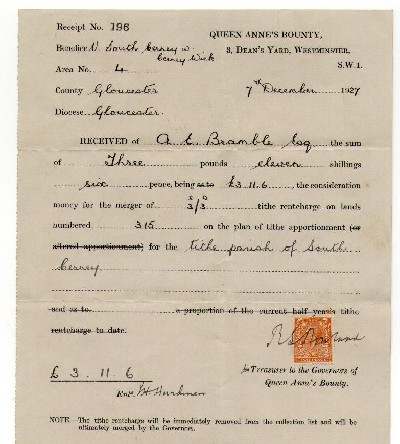 Receipt No. 196
QUEEN ANNE'S BOUNTY,
Benefice V. South Cerney w.
Cerney Wick
3, DEAN'S YARD, WESTMINSTER,
Area No. 4
S.W.1.
County Gloucester
7th December 1927
Diocese Gloucester.
RECEIVED of A E Bramble Esq the sum
of Three pounds eleven shillings
six pence, being as to £3.11.6, the consideration
money for the merger of 3/3 tithe rentcharge on lands
numbered 315 on the plan of tithe apportionment (or
altered apportionment) for the tithe parish of South
Cerney
and as to a proportion of the current half year's tithe
rentcharge to date.
£ 3. 11. 6
for Treasurer to the Governors of
Queen Anne's Bounty.
NOTE The tithe rentcharge will be immediately removed from the collection list and will be
ultimately merged by the Governors.